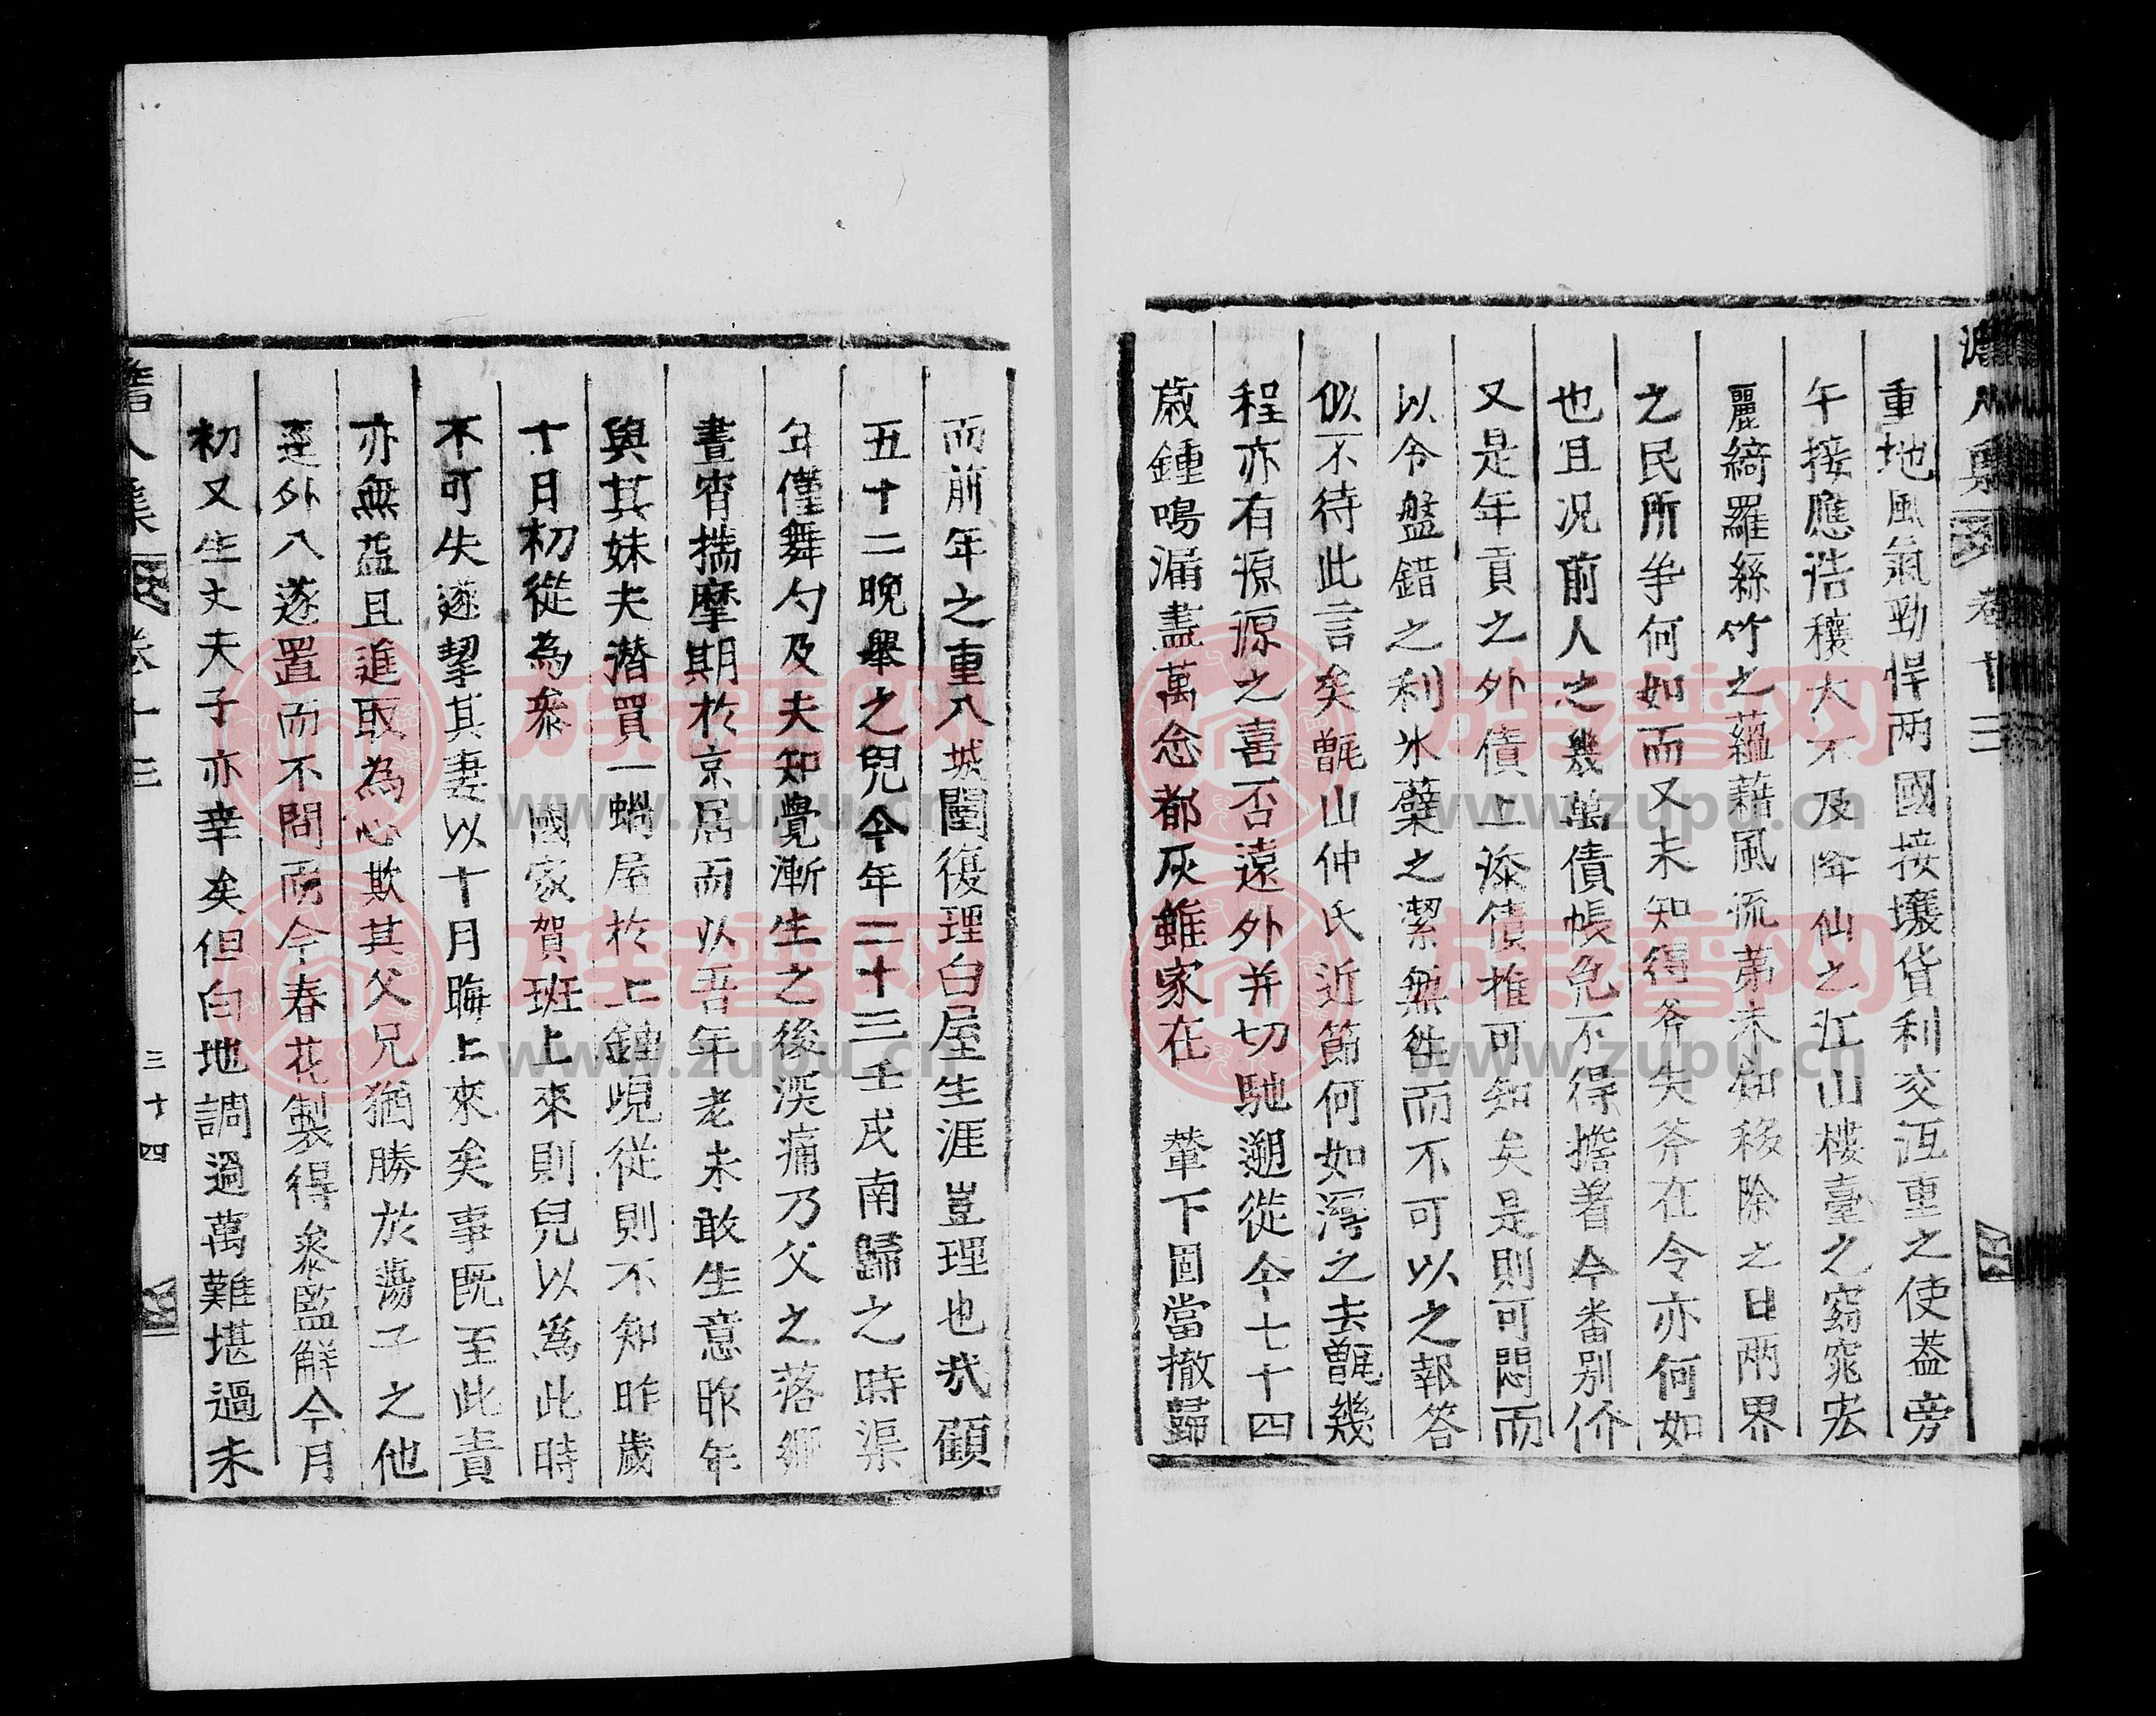 卷十三
重地風氣勁悍兩國接壤貨利交沍重之使蓋旁
午接應浩穰大不及降仙之江山樓臺之窈窕宏
麗綺羅絲竹之蘊藉風流苐未知移除之日兩界
之民所爭何如而又未知得斧失斧在令亦何如
也且况前人之幾萬債帳免不得擔着今番別价
又是年貢之外債上添債推可知矣是則可悶而
以令盤錯之利氷蘗之潔無徃而不可以之報答
似不待此言矣甑山仲氏近節何如灣之去甑幾
程亦有源源之喜否遠外并切馳遡從今七十四
歲鍾鳴漏盡萬念都灰雖家在 輦下固當撤歸
而前年之重入城闉復理白屋生涯豈理也哉顧
五十二晩舉之兒今年二十三壬戌南歸之時渠
年僅舞勺及夫知覺漸生之後深痛乃父之落鄉
晝宵揣摩期於京居而以吾年老未敢生意昨年
與其妹夫潛買一蝸屋於上鍾峴從則不知昨歲
十月初從為叅 國家賀班上來則兒以為此時
不可失遂挈其妻以十月晦上來矣事旣至此責
亦無益且進取為心欺其父兄猶勝於蕩子之他
逕外入遂置而不問而今春花製得叅監解今月
初又生丈夫子亦幸矣但白地調過萬難堪過未
人集 卷十三
三十四